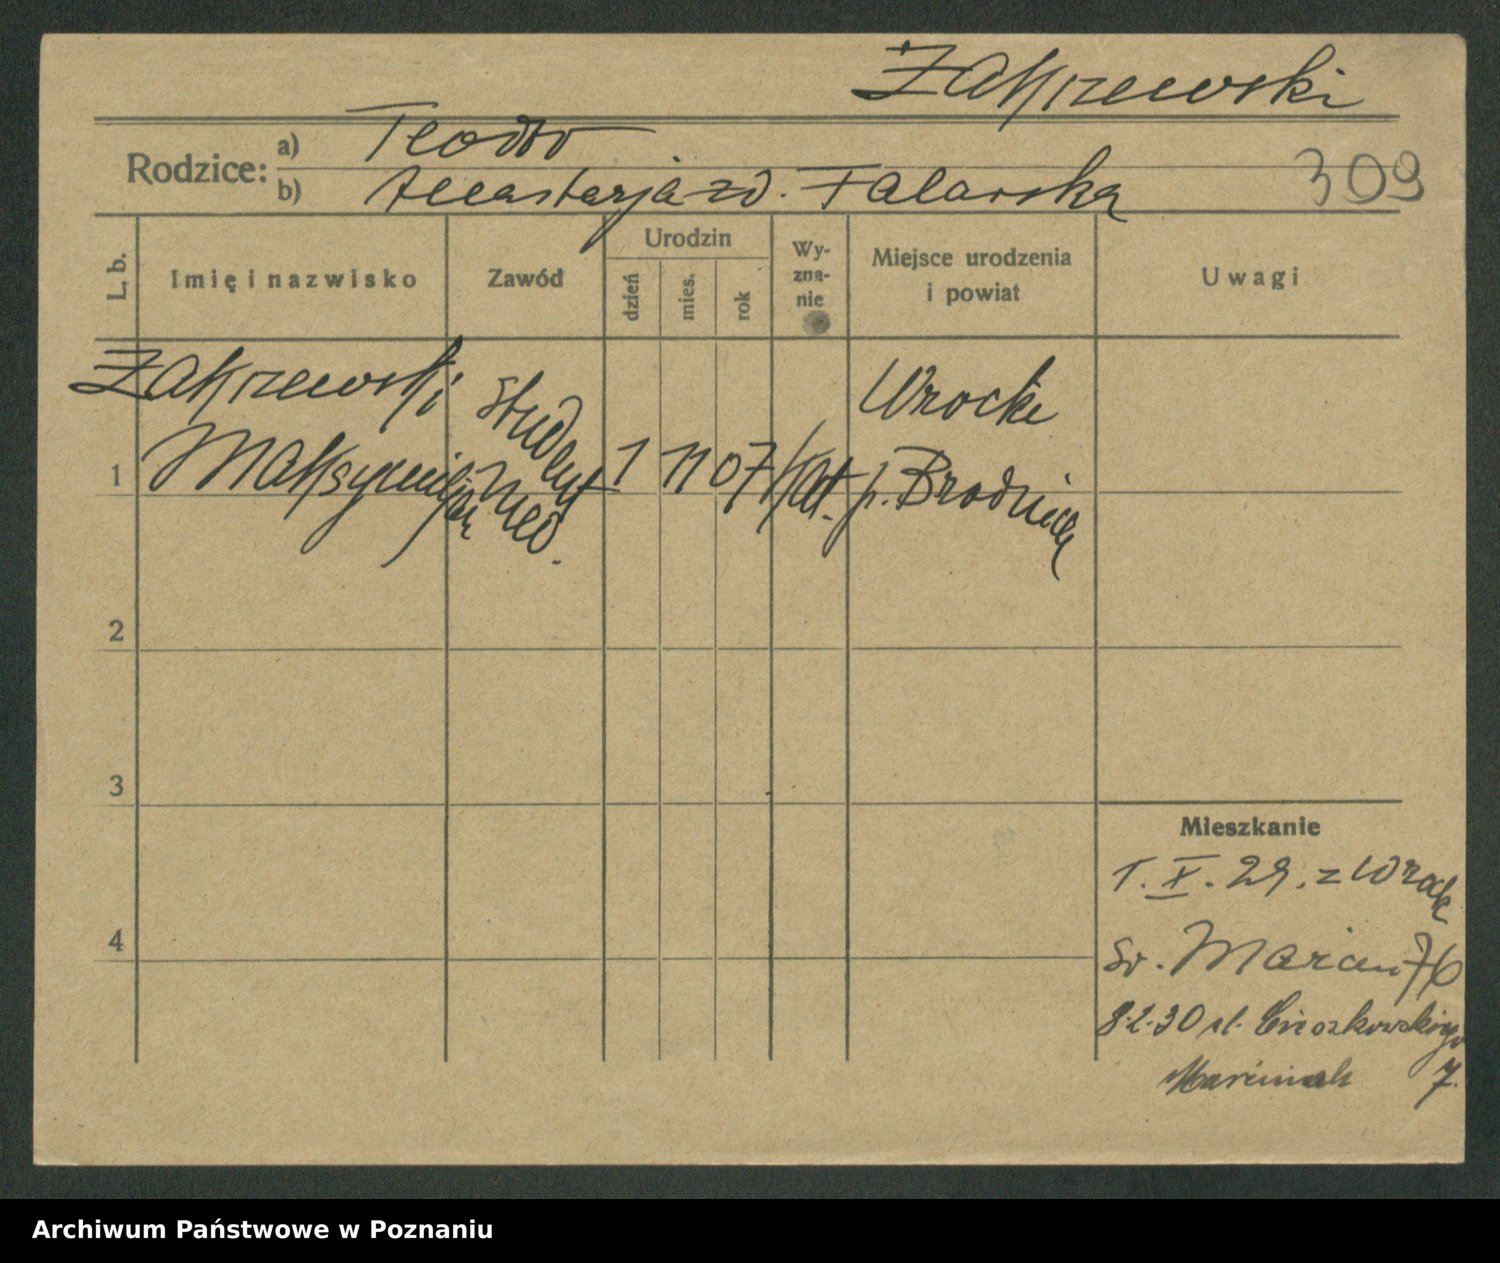 Zakrzewski
Rodzice: a) Teodor
b) Anastazja zd. Falarska
309
L. b.
Imię i nazwisko
Zawód
Urodzin
dzień
mies.
rok
Wy-
zna-
nie
Miejsce urodzenia
i powiat
Uwagi
Zakrzewski
Maksymiljan
student
med.
1 11 07
Kat.
Wrocki
p. Brodnica
1
2
3
4
Mieszkanie
1. X. 29. z Wrock
Św. Marcin 76
8.2.30 ul. Cieszkowskiego
Marciniak 7.
Archiwum Państwowe w Poznaniu